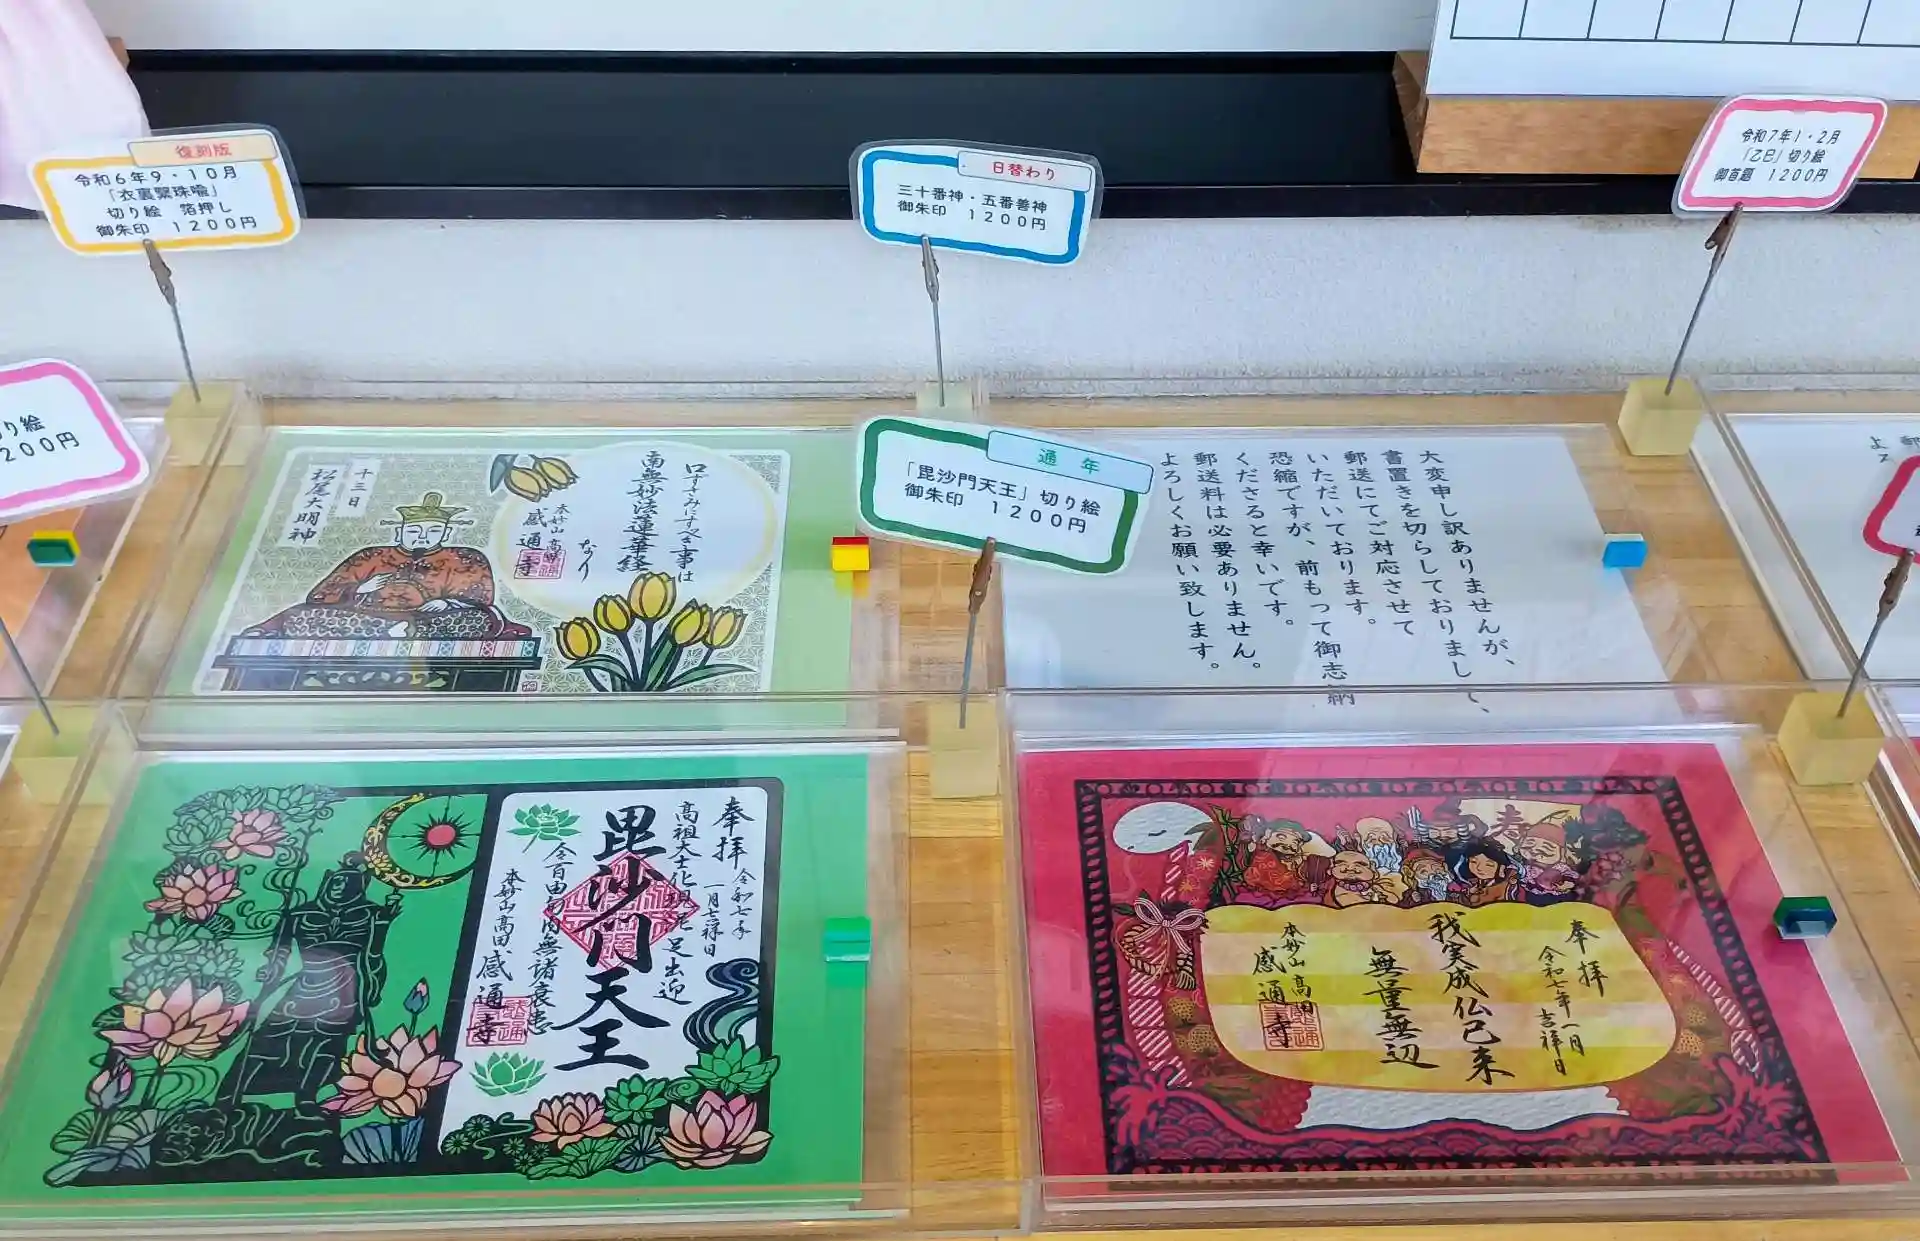 復刻版
令和6年9・10月
「衣裏繋珠喩」
切り絵 箔押し
御朱印 1200円
日替わり
三十番神・五番善神
御朱印 1200円
令和7年1・2月
「乙巳」切り絵
御首題 1200円
り絵
200円
通年
「毘沙門天王」切り絵
御朱印 1200円
口ずさみにすべき事は
南無妙法蓮華経
なり
本妙山 高田
感通寺
十三日
松尾大明神
大変申し訳ありませんが、
書置きを切らしておりまして、
郵送にてご対応させて
いただいております。
恐縮ですが、前もって御志納
くださると幸いです。
郵送料は必要ありません。
よろしくお願い致します。
奉拝
令和七年
一月七祥日
高祖大士化現尼足出迎
毘沙門天王
令百由旬内無諸衰患
本妙山高田
感通寺
寿
奉拝
令和七年一月
吉祥日
我実成仏已来
無量無辺
本妙山 高田
感通寺